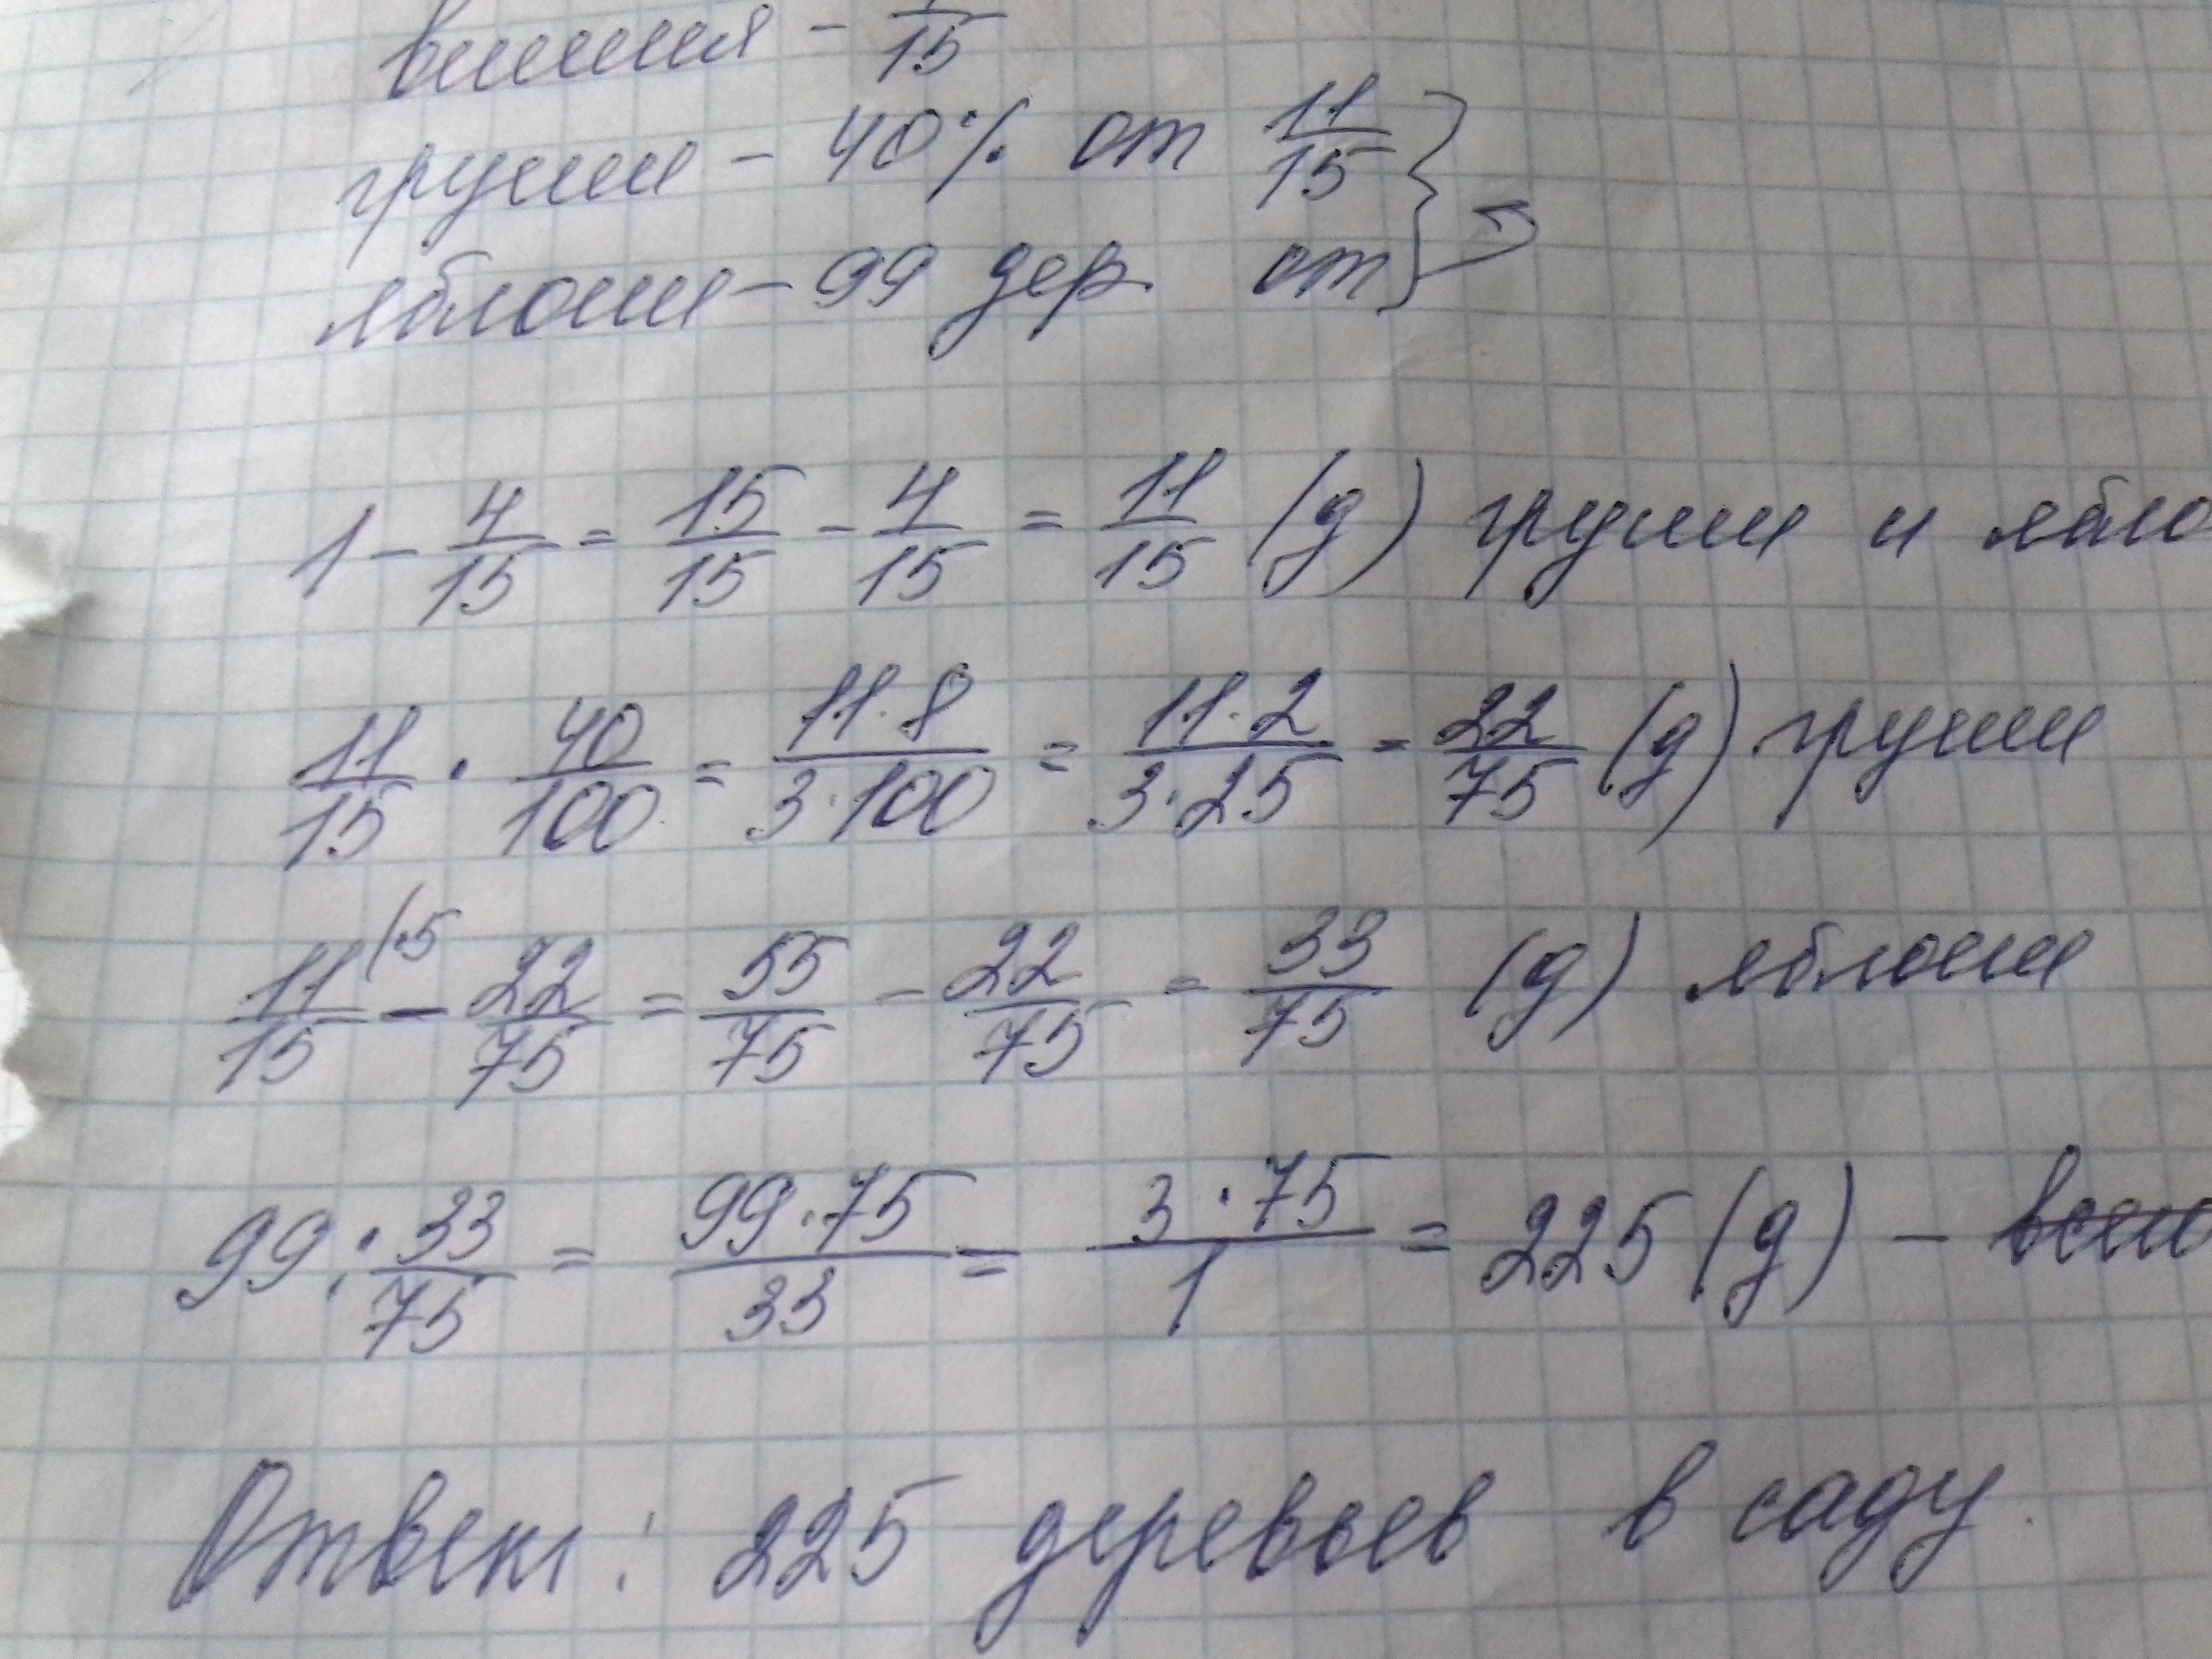 вишня - /15
груши - 40% от 11/15 }
яблони - 99 дер. от
1 - 4/15 = 15/15 - 4/15 = 11/15 (д) груши и ябло
11/15 · 40/100 = 11·8/3·100 = 11·2/3·25 = 22/75 (д) груши
11/15 (·5 - 22/75 = 55/75 - 22/75 = 33/75 (д) яблони
99 : 33/75 = 99·75/33 = 3·75/1 = 225 (д) -
Ответ: 225 деревьев в саду.